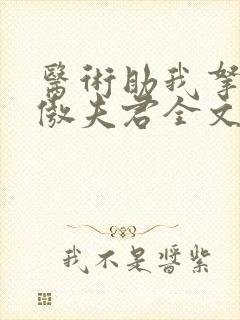 醫術助我拏
傲夫君全文
我不是醬紫